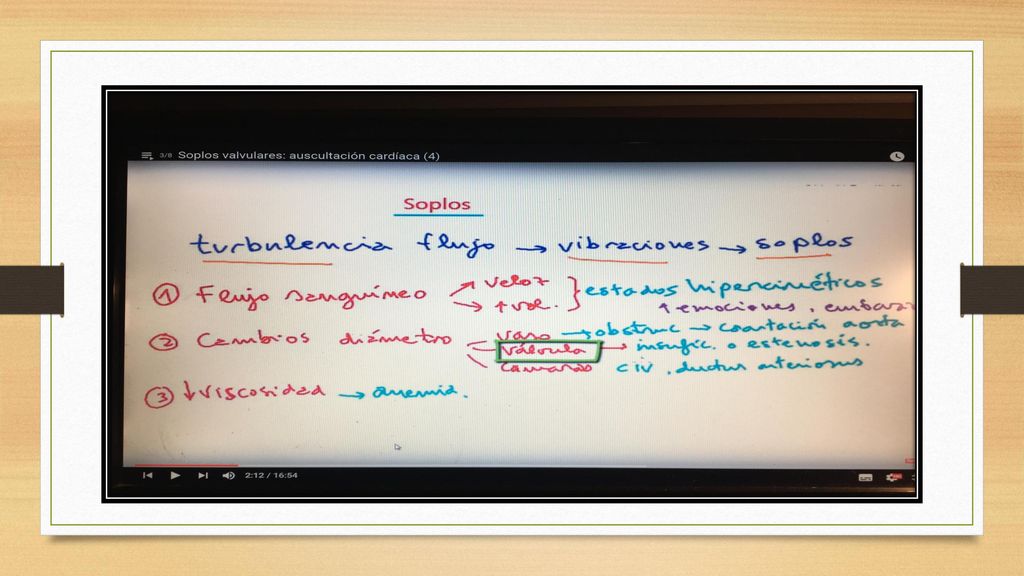 3/8 Soplos valvulares: auscultación cardíaca (4)
Soplos
turbulencia flujo → vibraciones → soplos
① Flujo sanguíneo ↗ veloz } estados hipercinéticos
→ ↑ vol. ↑ emociones, embaraz
② Cambios diámetro vaso → obstruc → coartación aorta
válvula → insufic. o estenosis.
cámaras CIV, ductus arteriosus
③ ↓ viscosidad → anemia.
2:12 / 16:54